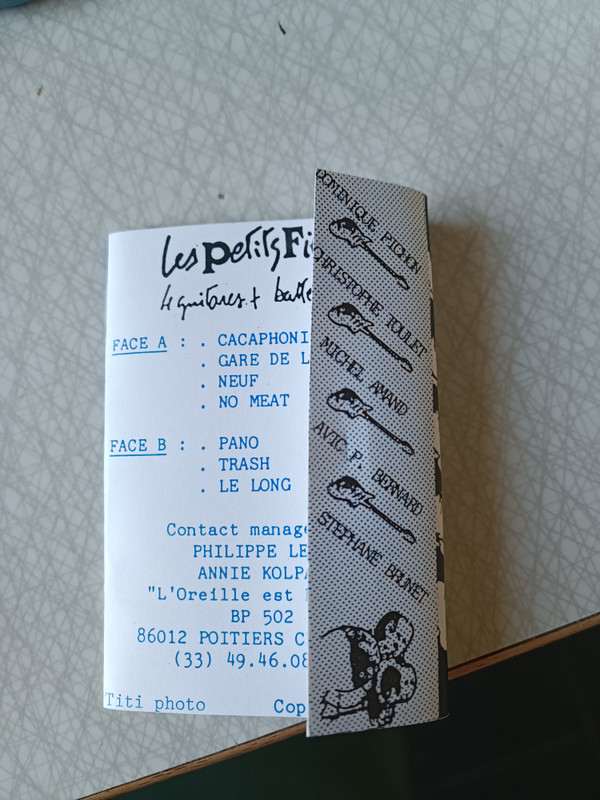 les petits Fi
4 guitares + batte
FACE A : . CACAPHONI
. GARE DE L
. NEUF
. NO MEAT
FACE B : . PANO
. TRASH
. LE LONG
Contact manage
PHILIPPE LE
ANNIE KOLPA
"L'Oreille est
BP 502
86012 POITIERS C
(33) 49.46.08
Titi photo
Cop
DOMINIQUE PICHON
CHRISTOPHE TOULET
MICHEL AMAND
AVIC P. BERNARD
STEPHANE BRUNET